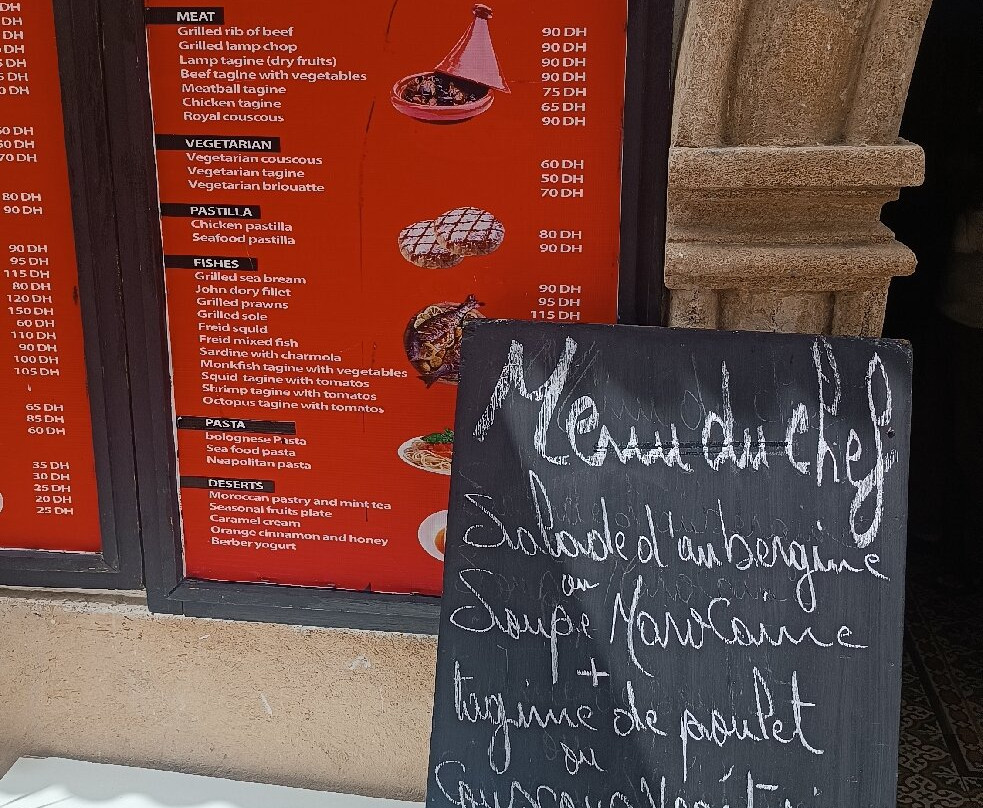 DH
DH
DH
DH
DH
DH
0 DH
60 DH
60 DH
70 DH
80 DH
90 DH
90 DH
95 DH
115 DH
80 DH
120 DH
150 DH
60 DH
110 DH
90 DH
100 DH
105 DH
65 DH
85 DH
60 DH
35 DH
30 DH
25 DH
20 DH
25 DH
MEAT
Grilled rib of beef 90 DH
Grilled lamp chop 90 DH
Lamp tagine (dry fruits) 90 DH
Beef tagine with vegetables 90 DH
Meatball tagine 75 DH
Chicken tagine 65 DH
Royal couscous 90 DH
VEGETARIAN
Vegetarian couscous 60 DH
Vegetarian tagine 50 DH
Vegetarian briouatte 70 DH
PASTILLA
Chicken pastilla 80 DH
Seafood pastilla 90 DH
FISHES
Grilled sea bream 90 DH
John dory fillet 95 DH
Grilled prawns 115 DH
Grilled sole
Freid squid
Freid mixed fish
Sardine with charmola
Monkfish tagine with vegetables
Squid tagine with tomatos
Shrimp tagine with tomatos
Octopus tagine with tomatos
PASTA
bolognese Pasta
Sea food pasta
Neapolitan pasta
DESERTS
Moroccan pastry and mint tea
Seasonal fruits plate
Caramel cream
Orange cinnamon and honey
Berber yogurt
Menu du chef
Salade d'aubergine
ou
Soupe Marocaine
+
tagine de poulet
ou
Couscous